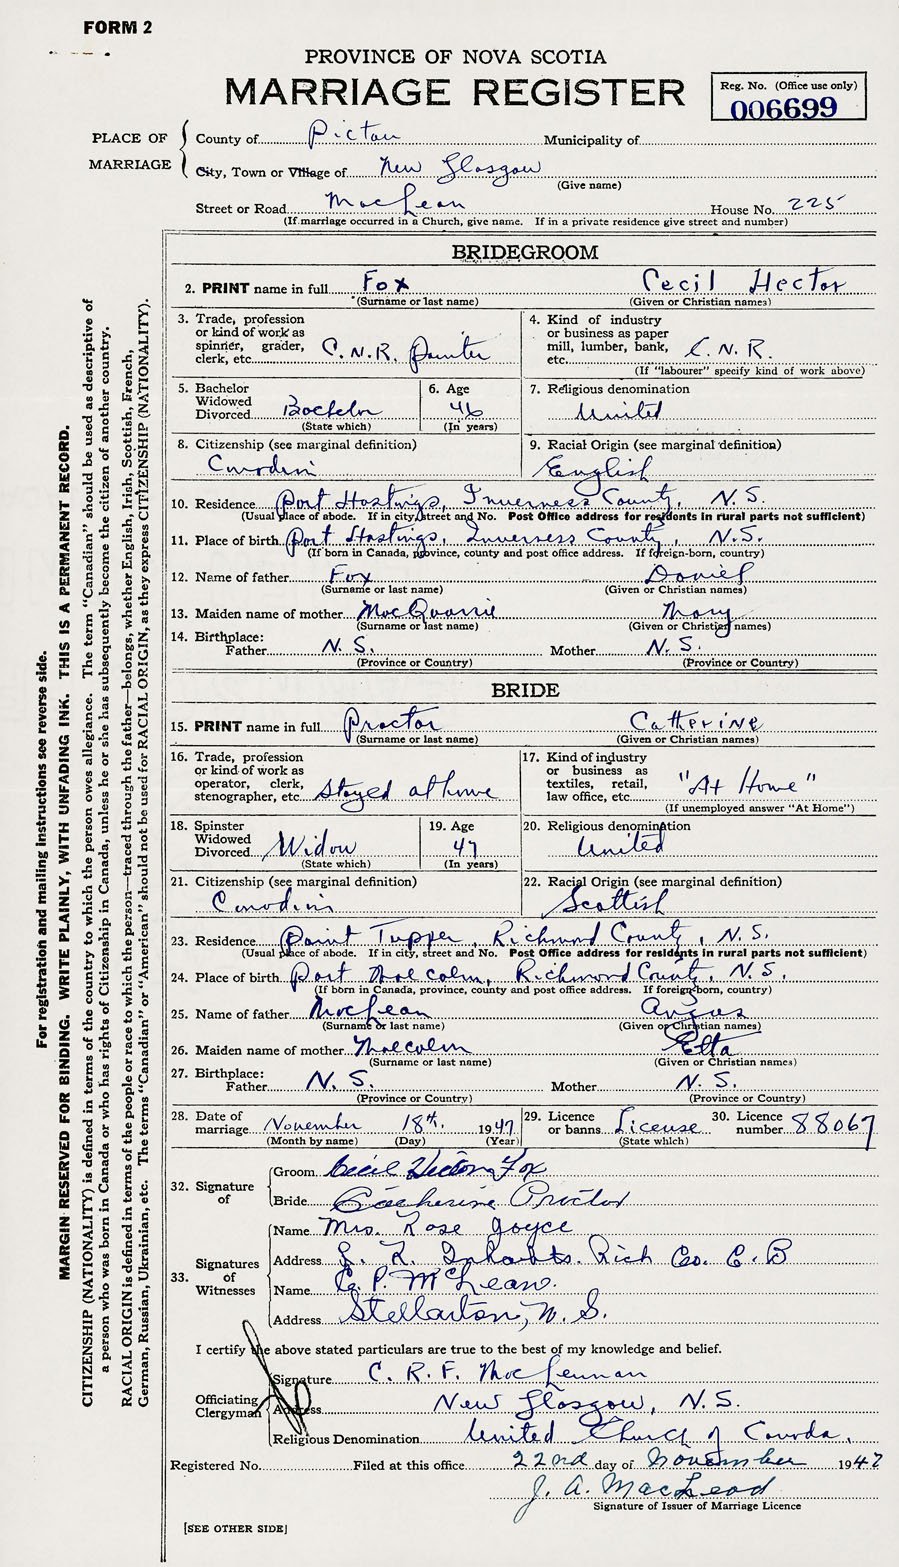 FORM 2
PROVINCE OF NOVA SCOTIA
MARRIAGE REGISTER
Reg. No. (Office use only)
006699
PLACE OF MARRIAGE
County of Pictou Municipality of
City, Town or Village of New Glasgow
(Give name)
Street or Road MacLean House No. 225
(If marriage occurred in a Church, give name. If in a private residence give street and number)
BRIDEGROOM
2. PRINT name in full Fox Cecil Hector
(Surname or last name) (Given or Christian names)
3. Trade, profession or kind of work as spinner, grader, clerk, etc. C.N.R. Painter
4. Kind of industry or business as paper mill, lumber, bank, etc. C.N.R.
(If "labourer" specify kind of work above)
5. Bachelor Widowed Divorced Bachelor
(State which)
6. Age 46
(In years)
7. Religious denomination United
8. Citizenship (see marginal definition) Canadian
9. Racial Origin (see marginal definition) English
10. Residence Port Hastings, Inverness County, N.S.
(Usual place of abode. If in city, street and No. Post Office address for residents in rural parts not sufficient)
11. Place of birth Port Hastings, Inverness County, N.S.
(If born in Canada, province, county and post office address. If foreign-born, country)
12. Name of father Fox Daniel
(Surname or last name) (Given or Christian names)
13. Maiden name of mother MacQuarrie Mary
(Surname or last name) (Given or Christian names)
14. Birthplace:
Father N.S. Mother N.S.
(Province or Country) (Province or Country)
BRIDE
15. PRINT name in full Proctor Catherine
(Surname or last name) (Given or Christian names)
16. Trade, profession or kind of work as operator, clerk, stenographer, etc. Stayed at home
17. Kind of industry or business as textiles, retail, law office, etc. "At Home"
(If unemployed answer "At Home")
18. Spinster Widowed Divorced Widow
(State which)
19. Age 47
(In years)
20. Religious denomination United
21. Citizenship (see marginal definition) Canadian
22. Racial Origin (see marginal definition) Scottish
23. Residence Point Tupper, Richmond County, N.S.
(Usual place of abode. If in city, street and No. Post Office address for residents in rural parts not sufficient)
24. Place of birth Port Malcolm, Richmond County, N.S.
(If born in Canada, province, county and post office address. If foreign-born, country)
25. Name of father MacLean Angus
(Surname or last name) (Given or Christian names)
26. Maiden name of mother Malcolm Etta
(Surname or last name) (Given or Christian names)
27. Birthplace:
Father N.S. Mother N.S.
(Province or Country) (Province or Country)
28. Date of marriage November 18th. 1947
(Month by name) (Day) (Year)
29. Licence or banns License
(State which)
30. Licence number 88067
32. Signature of
Groom Cecil Hector Fox
Bride Catherine Proctor
33. Signatures of Witnesses
Name Mrs. Rose Joyce
Address Rich Co. C.B
Name P. McLean.
Address Stellarton, N.S.
I certify the above stated particulars are true to the best of my knowledge and belief.
Officiating Clergyman
Signature C.R.F. MacLennan
Address New Glasgow, N.S.
Religious Denomination United Church of Canada.
Registered No. Filed at this office 22nd day of November 1947
J.A. MacLeod
Signature of Issuer of Marriage Licence
[SEE OTHER SIDE]
For registration and mailing instructions see reverse side.
MARGIN RESERVED FOR BINDING. WRITE PLAINLY, WITH UNFADING INK. THIS IS A PERMANENT RECORD.
CITIZENSHIP (NATIONALITY) is defined in terms of the country to which the person owes allegiance. The term "Canadian" should be used as descriptive of
a person who was born in Canada or who has rights of Citizenship in Canada, unless he or she has subsequently become the citizen of another country.
RACIAL ORIGIN is defined in terms of the people or race to which the person—traced through the father—belongs, whether English, Irish, Scottish, French,
German, Russian, Ukrainian, etc. The terms "Canadian" or "American" should not be used for RACIAL ORIGIN, as they express CITIZENSHIP (NATIONALITY).